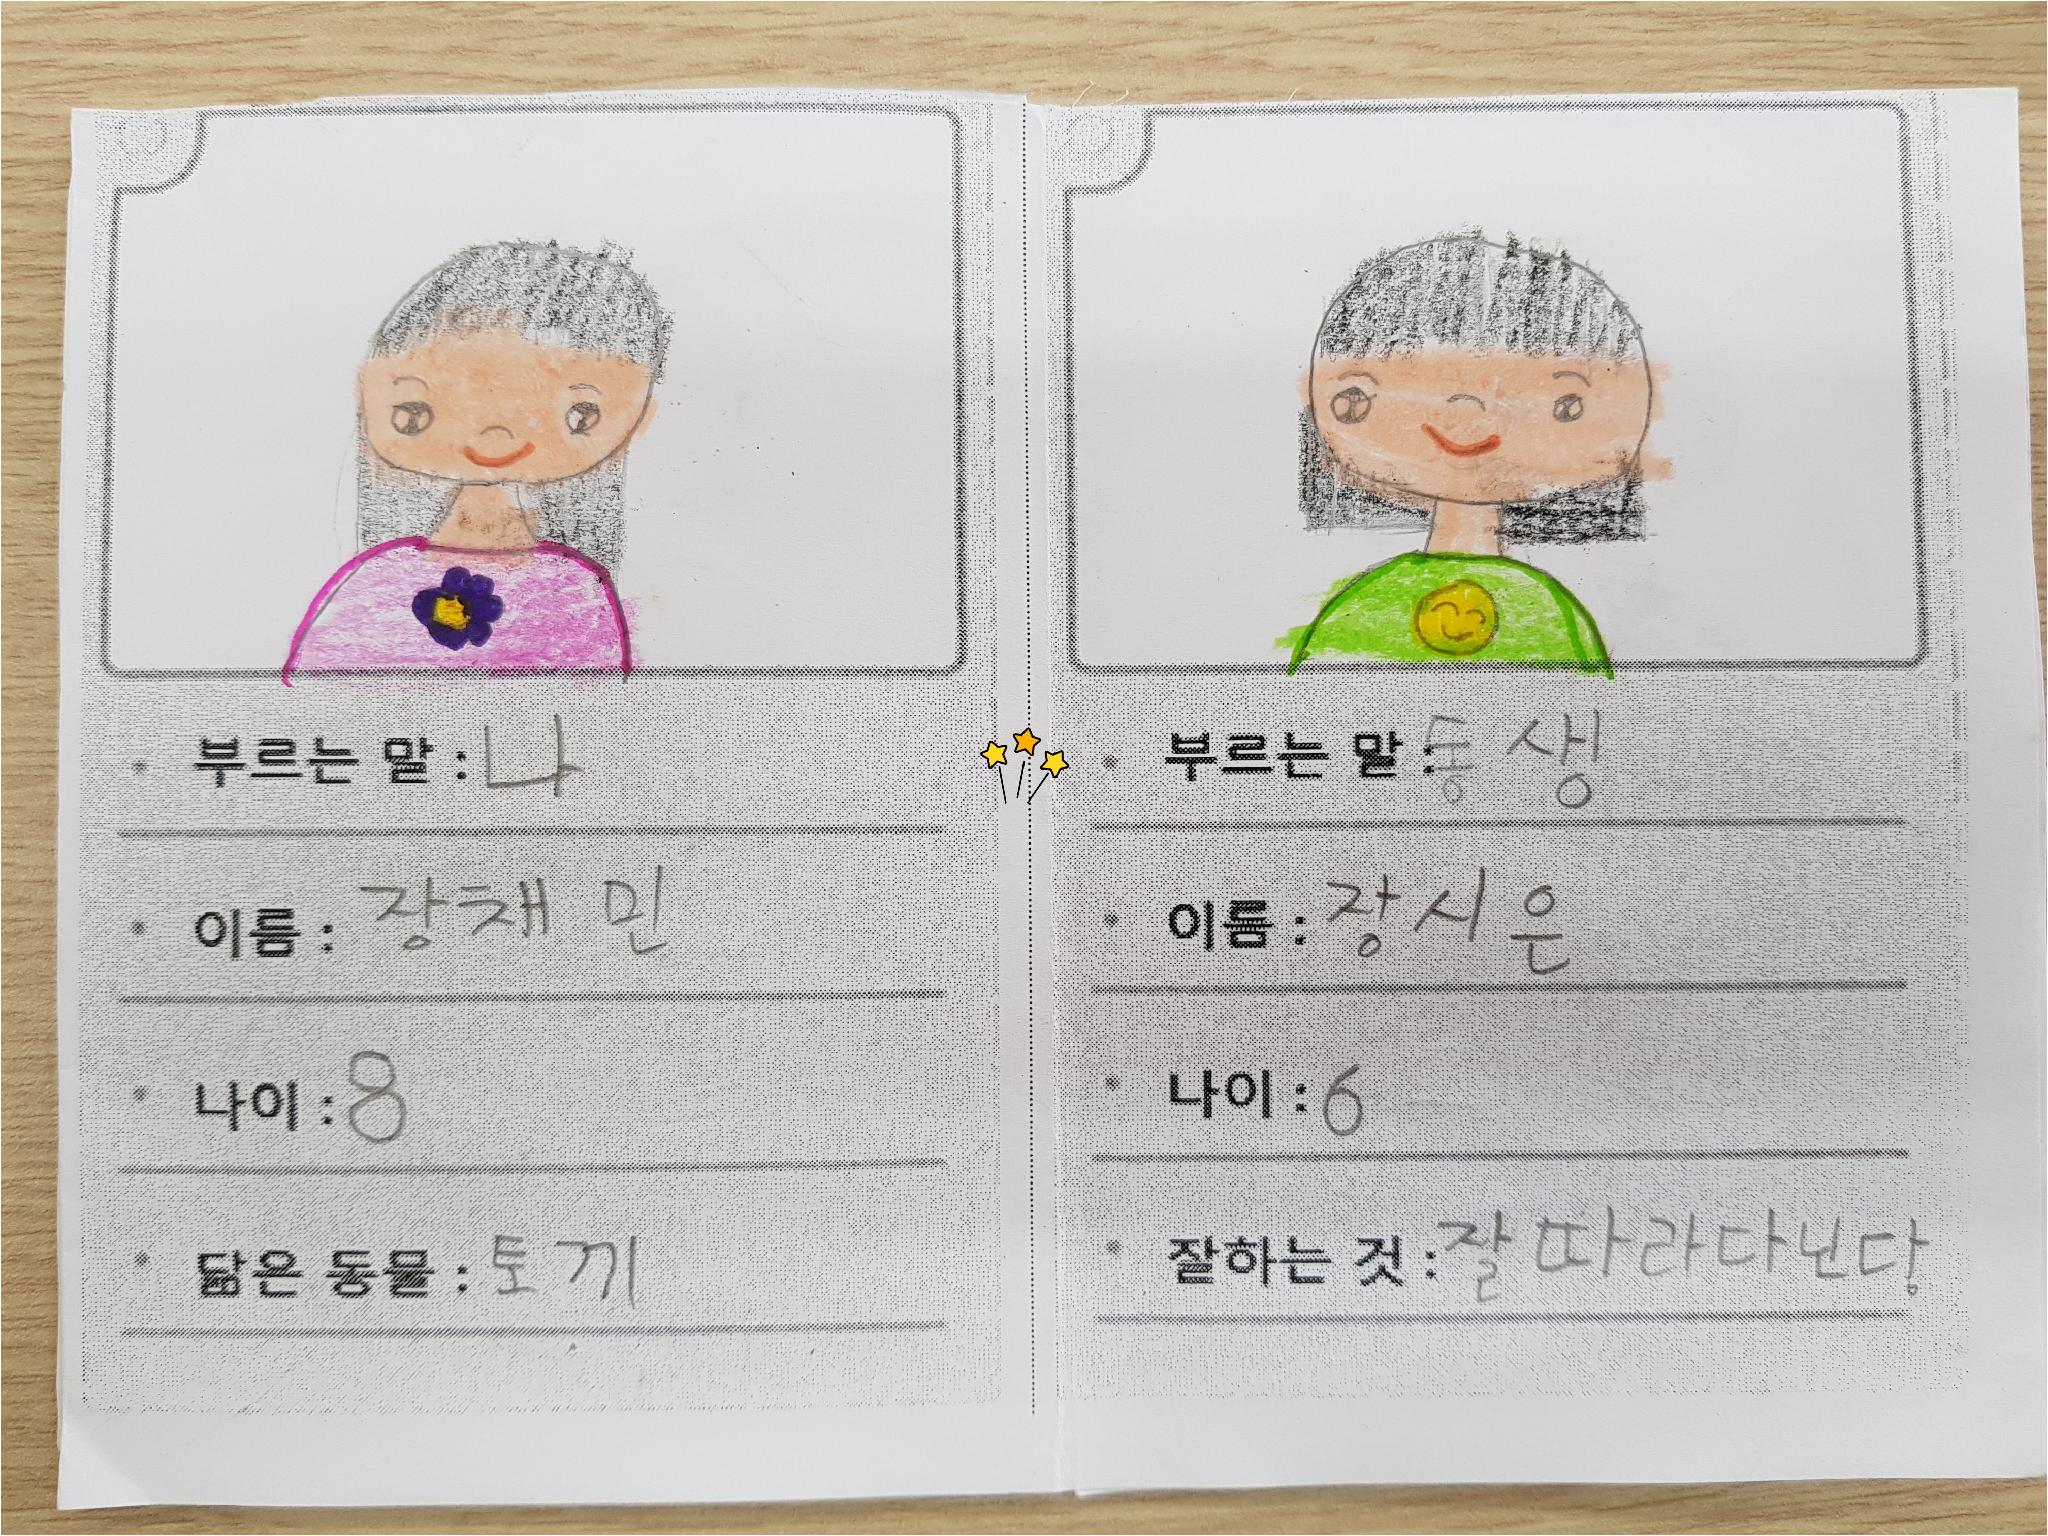 부르는 말 : 나
이름 : 장채민
나이 : 8
닮은 동물 : 토끼
부르는 말 : 동생
이름 : 장시은
나이 : 6
잘하는 것 : 잘 따라다닌당